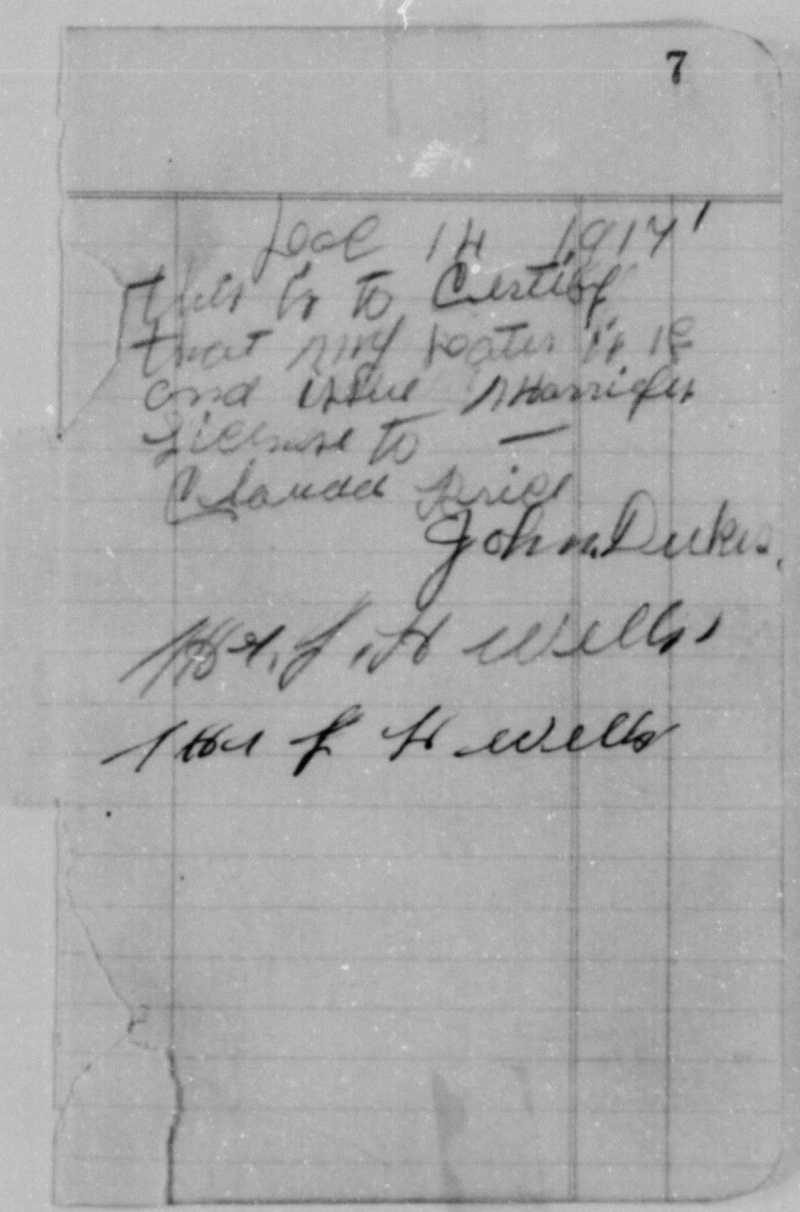 7
Dec 14 1917
this is to Certify
that my Doater is 18
and issue Marrige
License to —
Claud Price
John Dukes.
Mr. L. H Wells,
Mr L H Wells